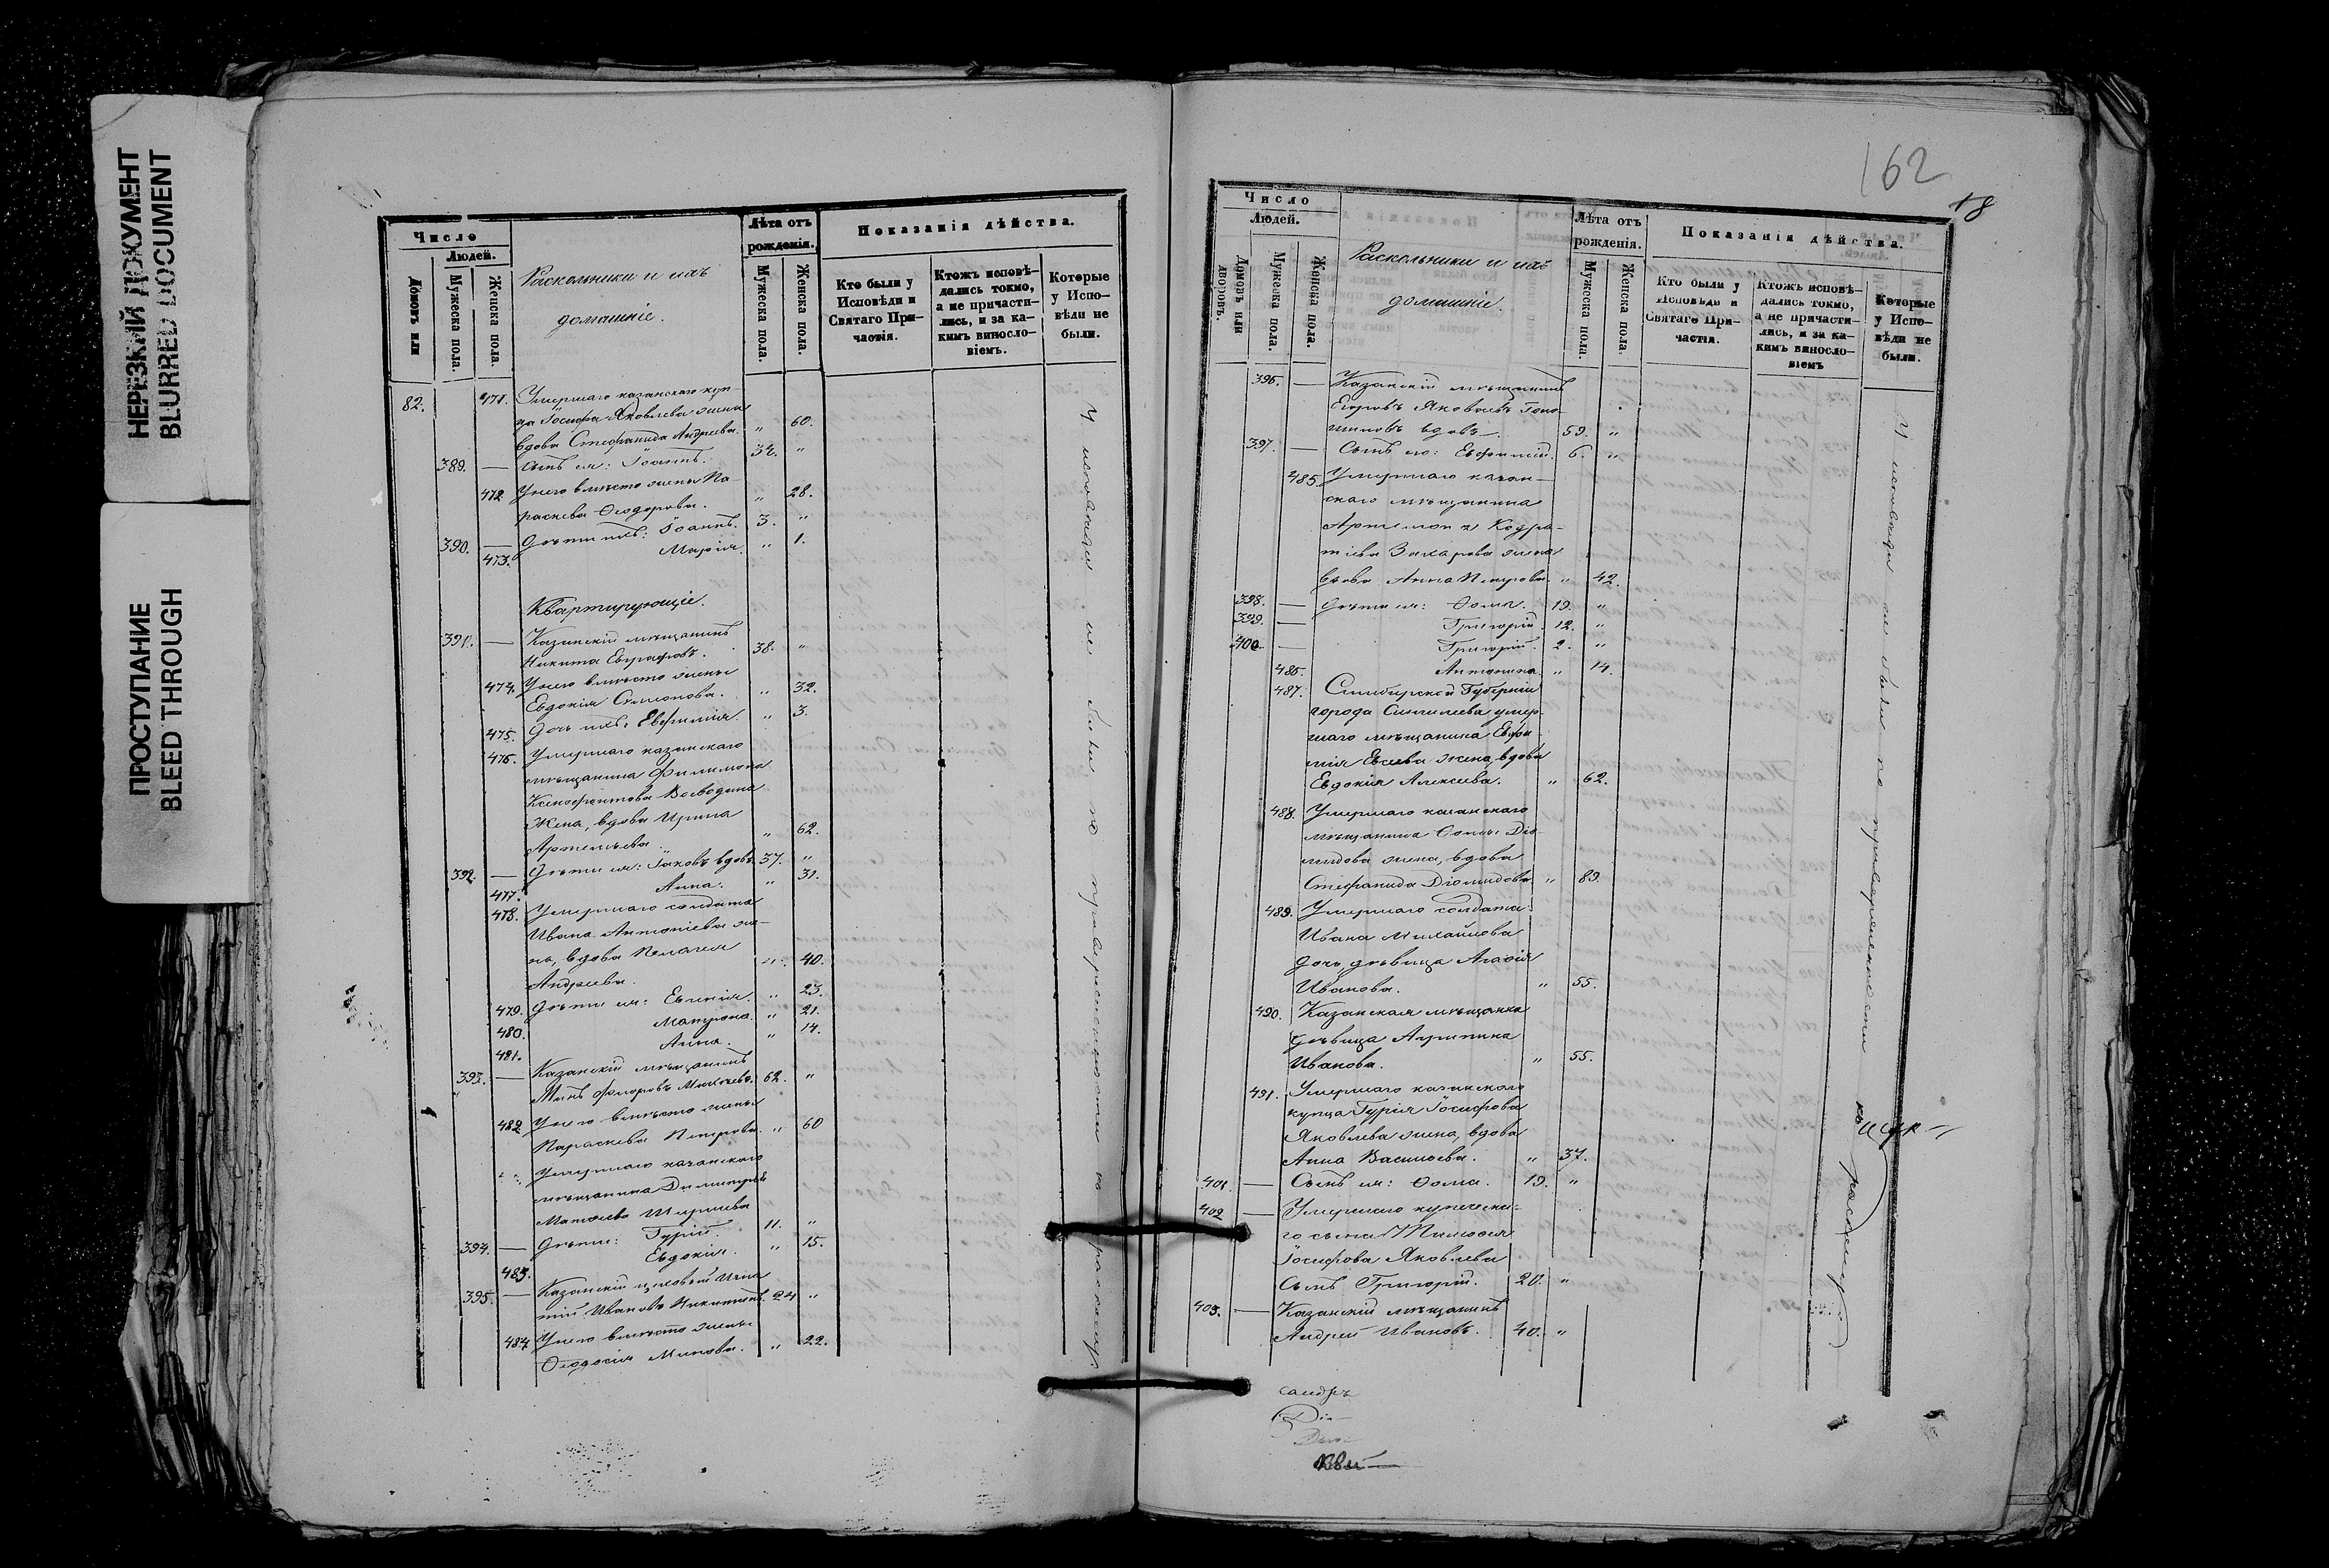 НЕРЕЗКИЙ ДОКУМЕНТ
BLURRED DOCUMENT
ПРОСТУПАНИЕ
BLEED THROUGH
Число
Людей.
Домовъ или
Мужеска пола.
Женска пола.
Раскольники и ихъ
домашніе.
Лѣта отъ
рожденія.
Мужеска пола.
Женска пола.
Показанія дѣйства.
Кто были у
Исповѣди и
Святаго При-
частія.
Ктожъ исповѣ-
дались токмо,
а не причасти-
лись, и за ка-
кимъ виносло-
віемъ.
Которые
у Испо-
вѣди не
были.
82. 471. Умершаго казанскаго куп-
ца Іосифа Яковлева жена
вдова Стефанида Андреева. " 60.
389. — Сынъ ея: Іоаннъ. 34. "
472. У него вмѣсто жены Па-
раскева Ѳеодорова. " 28.
390. — Дѣти ихъ: Іоаннъ. 3. "
473. Марія. " 1.
Квартирующіе.
391. — Казанскій мѣщанинъ
Никита Евграфовъ. 38. "
474. У него вмѣсто жены
Евдокія Симонова. " 32.
475. Дочь ихъ: Евфимія. " 3.
476. Умершаго казанскаго
мѣщанина Филимона
Ксенофонтова Воеводина
жена, вдова Ирина
Артемьева. " 62.
392. — Дѣти ея: Іаковъ вдовъ. 37. "
477. Анна. " 31.
478. Умершаго солдата
Ивана Антоніева же-
на, вдова Пелагея
Андреева. " 40.
479. Дѣти ея: Евгенія. " 23.
480. Матрона. " 21.
481. Анна. " 14.
393. — Казанскій мѣщанинъ
Минъ Флоровъ 62. "
482 У него вмѣсто жены
Параскева Петрова. " 60
Умершаго казанскаго
мѣщанина Димитрія
Матѳеева
394. — Дѣти: Гурій. 11. "
483. Евдокія. " 15.
395. — Казанскій цеховый Игна-
тій Ивановъ Никитинъ. 24 "
484 У него вмѣсто жены
Ѳеодосія Минова. " 22.
У исповѣди не были по приверженности къ расколу.
162
18
Число
Людей.
Домовъ или
дворовъ.
Мужеска пола.
Женска пола.
Раскольники и ихъ
домашніе.
Лѣта отъ
рожденія.
Мужеска пола.
Женска пола.
Показанія дѣйства.
Кто были у
Исповѣди и
Святаго При-
частія.
Ктожъ исповѣ-
дались токмо,
а не причасти-
лись, и за ка-
кимъ виносло-
віемъ
Которые
у Испо-
вѣди не
были.
396. — Казанскій мѣщанинъ
Егоръ Яковлевъ
вдовъ. 59. "
397. — Сынъ его: Евфимій. 6. "
485. Умершаго казан-
скаго мѣщанина
Артемона Кодра-
тіева Захарова жена
вдова Анна Петрова. " 42.
398. — Дѣти ея: Ѳома. 19. "
399. — Григорій. 12. "
400 — Григорій. 2. "
486. Антонина. " 14.
487. Симбирской Губерніи
города Сингилеева умер-
шаго мѣщанина Евфи-
мія Евсеева жена, вдова
Евдокія Алексеева. " 62.
488. Умершаго казанскаго
мѣщанина Діо-
мидова жена, вдова
Стефанида Діомидова. " 89.
489. Умершаго солдата
Ивана Михайлова
дочь, дѣвица Агафія
Иванова. " 55.
490. Казанская мѣщанка
дѣвица Агрипина
Иванова. " 55.
491. Умершаго казанскаго
купца Гурія Іосифова
Яковлева жена, вдова
Анна Васильева. " 37.
401. — Сынъ ея: Ѳома. 19. "
402 — Умершаго купечески-
го сына Тимофея
Іосифова Яковлева
Сынъ Григорій. 20. "
403. — Казанскій мѣщанинъ
Андрей Ивановъ. 40. "
У исповѣди не были по приверженности къ расколу